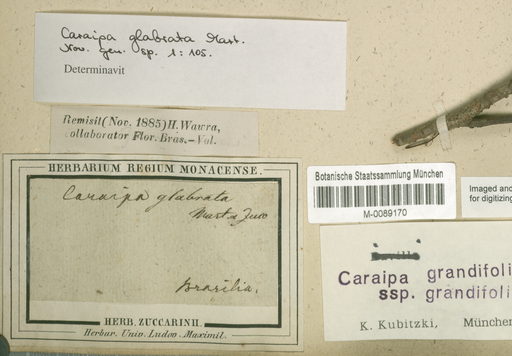 Caraipa glabrata Mart.
Nov. gen. sp. 1: 105.
Determinavit
Remisit (Nov. 1885) H. Wawra,
collaborator Flor. Bras.—Vol.
HERBARIUM REGIUM MONACENSE.
Caraipa glabrata
Mart & Zucc
Brasilia.
HERB. ZUCCARINII.
Herbar. Univ. Ludov. Maximil.
Botanische Staatssammlung München
M-0089170
Imaged and
for digitizing
Caraipa grandifoli
ssp. grandifoli
K. Kubitzki, München